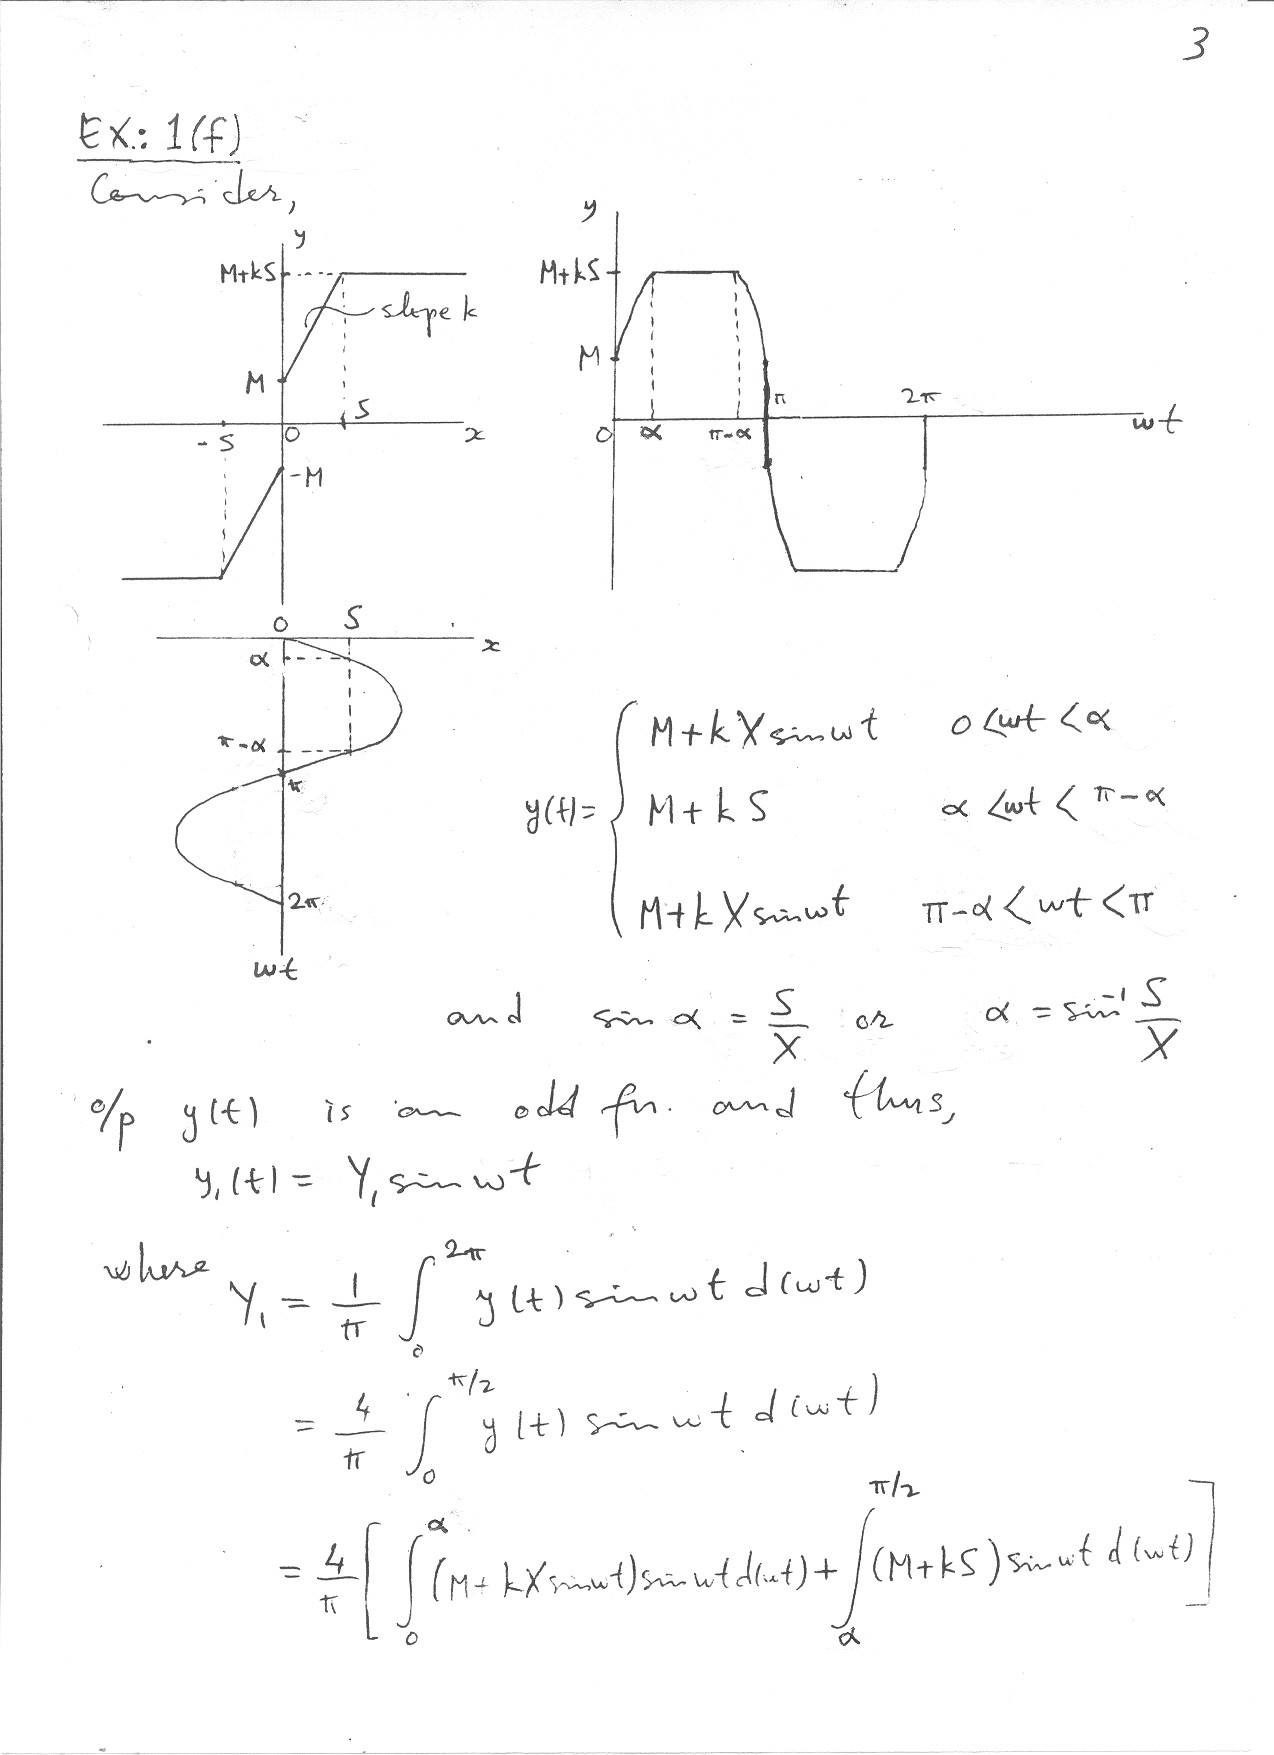 3
EX.: 1(f)
Consider,
y
M+kS
slope k
M
S
-S
0
x
-M
y
M+kS
M
0
α
π-α
π
2π
wt
0
S
x
α
π-α
π
2π
wt
y(t)= { M+kX sinwt 0<wt<α
M+kS α<wt<π-α
M+kX sinwt π-α<wt<π
and sin α = S/X or α = sin⁻¹ S/X
o/p y(t) is an odd fn. and thus,
y₁(t) = Y₁ sin wt
where Y₁ = 1/π ∫₀^2π y(t) sinwt d(wt)
= 4/π ∫₀^π/2 y(t) sin wt d(wt)
= 4/π [ ∫₀^α (M+kX sinwt) sin wt d(wt) + ∫α^π/2 (M+kS) sin wt d(wt) ]